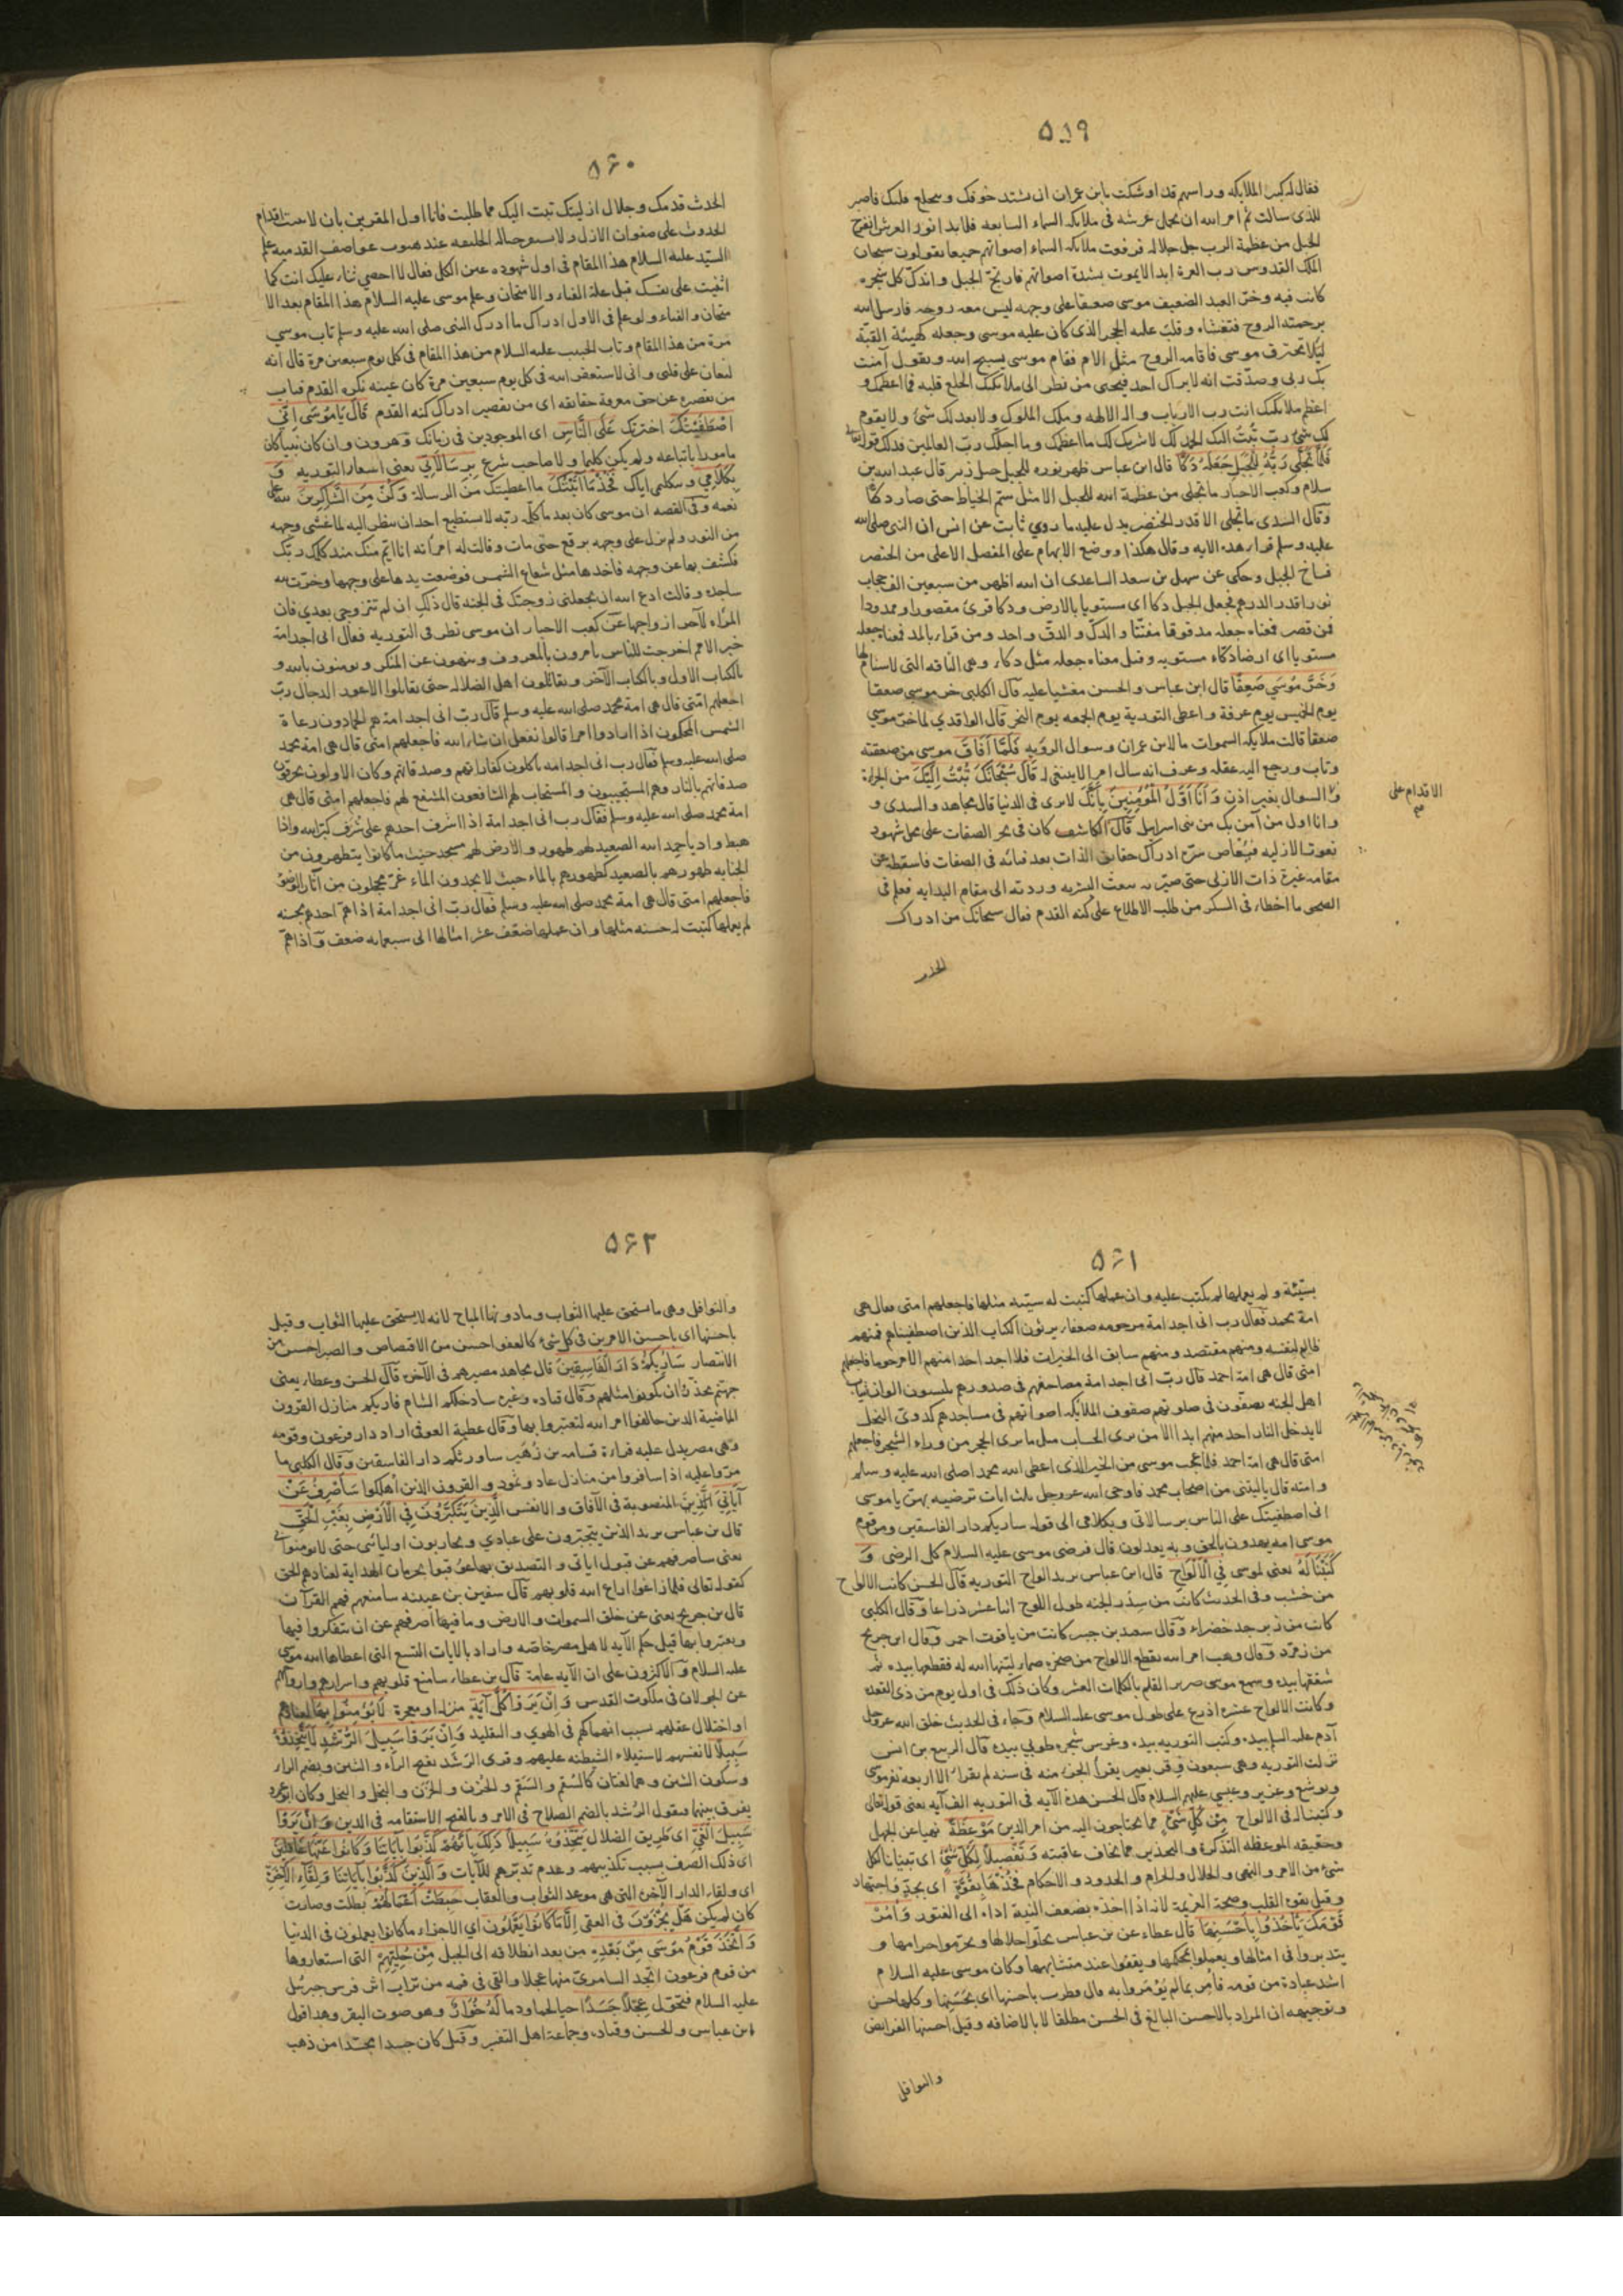 ۵۵۹
فقال له كبير الملايكه وراسهم قد اوشكت يا بن عمران ان يشتد خوفك وينخلع قلبك فاصبر
للذى سالت ثم امر الله ان تحمل عرشه فى ملايكه السماء السابعه فلما بدا نور العرش انفرج
الجبل من عظمة الرب جل جلاله فرفعت ملايكه السماء اصواتهم جميعا يقولون سبحان
الملك القدوس رب العزة ابدا لا يموت بشدة اصواتهم فارتج الجبل واندكّ كل شجره
كانت فيه وخرّ العبد الضعيف موسى صعيقا على وجهه ليس معه روحه فارسل الله
برحمته الروح فتغشاه وقلب عليه الحجر الذى كان عليه موسى وجعله كهيئة القبّة
ليلا يحترق موسى فاقامه الروح مثل الام فقام موسى يسبح الله ويقول آمنت
بك ربى وصدّقت انه لا يراك احد فيحيى من نظر الى ملايكتك انخلع قلبه فما اعظمك و
اعظم ملايكتك انت رب الارباب واله الالهه وملك الملوك ولا يعدلك شئ ولا يقوم
لك شئ ربّ تبت اليك الحمد لك لا شريك لك ما اعظمك وما اجلّك ربّ العالمين فذلك قوله تعالى
فَلَمَّا تَجَلَّى رَبُّهُ لِلْجَبَلِ جَعَلَهُ دَكًّا قال ابن عباس ظهر نوره للجبل جبل زبير قال عبد الله بن
سلام وكعب الاحبار ما تجلى من عظمة الله للجبل الا مثل سمّ الخياط حتى صار دكًّا
وقال السدى ما تجلى الا قدر الخنصر يدل عليه ما روي ثابت عن انس ان النبى صلى الله
عليه وسلم قراء هذه الايه وقال هكذا ووضع الابهام على المفصل الاعلى من الخنصر
فساخ الجبل وحكى عن سهل بن سعد الساعدى ان الله اظهر من سبعين الف حجاب
نورا قدر الدرهم فجعل الجبل دكا اى مستويا بالارض ودكا قرئ مقصورا وممدودا
فمن قصر فمعناه جعله مدقوقا مفتتا والدكّ والدقّ واحد ومن قراء بالمد فمعناه جعله
مستويا اى ارضا دكاء مستويه وقيل معناه جعله مثل دكاء وهى الناقه التى لا سنام لها
وَخَرَّ مُوسَى صَعِقًا قال ابن عباس والحسن مغشيا عليه قال الكلبى خر موسى صعقا
يوم الخميس يوم عرفة واعطى التورية يوم الجمعه يوم النحر قال الواقدي لما خرّ موسى
صعقا قالت ملايكه السموات ما لابن عمران وسوال الرؤيه فَلَمَّا أَفَاقَ موسى من صعقته
وتاب ورجع اليه عقله وعرف انه سال امرا لا ينبغى له قَالَ سُبْحَانَكَ تُبْتُ إِلَيْكَ من الجراة
و السوال بغير اذن وَأَنَا أَوَّلُ الْمُؤْمِنِينَ بانك لا ترى فى الدنيا قال مجاهد والسدى و
وانا اول من آمن بك من بنى اسرايل قال الكاشف كان فى بحر الصفات على محل شهود
نعوت الازليه سرّح ادراك حقايق الذات بعد فنائه فى الصفات فاسقطه عن
مقامه غيرة ذات الازلى حتى صيّر به بنعت البشريه وردته الى مقام البدايه فعلم فى
الصحو ما اخطاء فى السكر من طلب الاطلاع على كنه القدم فقال سبحانك من ادراك
الحدث
الاقدام على
۵۶۰
الحدث قدمك وجلال ازليتك تبت اليك مما طلبت فانا اول المقرين بان لا اقدام
الحدوث على صفوات الازل ولا الخليقه عند هبوب عواصف القدميه علم
السيّد عليه السلام هذا المقام فى اول شهوده عين الكل فقال لا احصي ثناء عليك انت كما
اثنيت على نفسك قبل علة الفناء والامتحان وعلم موسى عليه السلام هذا المقام بعد الا
متحان والفناء ولو علم فى الاول ادراك ما ادرك النبى صلى الله عليه وسلم تاب موسى
مرة من هذا المقام وتاب الحبيب عليه السلام من هذا المقام فى كل يوم سبعين مرة قال انه
ليغان على قلبى وانى لاستغفر الله فى كل يوم سبعين مرة كان غينه نكره القدم فتاب
من تقصيره عن حق معرفة حقايقه اى من تقصير ادراك كنه القدم قَالَ يَا مُوسَى إِنِّي
اصْطَفَيْتُكَ اخترتك عَلَى النَّاسِ اى الموجودين فى زمانك وهرون وان كان نبيا كان
مامورا باتباعه ولم يكن كليما ولا صاحب شرع بِرِسَالَاتِي يعنى اسفار التوريه وَ
بِكَلَامِي وبتكليمى اياك فَخُذْ مَا آتَيْتُكَ ما اعطيتك من الرسالة وَكُنْ مِنَ الشَّاكِرِينَ لله على
نعمه وفى القصه ان موسى كان بعد ما كلّمه ربّه لا يستطيع احد ان ينظر اليه لما غشى وجهه
من النور ولم يزل على وجهه برقع حتى مات وقالت له امراته انا ايم منك منذ كلمك ربّك
فكشف لها عن وجهه فاخذها مثل شعاع الشمس فوضعت يدها على وجهها وخرّت لله
ساجده وقالت ادع الله ان يجعلنى زوجتك فى الجنه قال ذلك ان لم تتزوجى بعدي فان
المراة لآخر ازواجها عن كعب الاحبار ان موسى نظر فى التوريه فقال انى اجد امة
خير الامم اخرجت للناس يامرون بالمعروف وينهون عن المنكر ويومنون بالله و
بالكتاب الاول وبالكتاب الآخر ويقاتلون اهل الضلاله حتى يقاتلوا الاعور الدجال ربّ
اجعلهم امّتى قال هى امة محمد صلى الله عليه وسلم قال ربّ انى اجد امة هم الحمادون رعاة
الشمس المحكمون اذا ارادوا امرا قالوا نفعل ان شاء الله فاجعلهم امتى قال هى امة محمد
صلى الله عليه وسلم فقال رب انى اجد امه ياكلون كفاراتهم وصدقاتهم وكان الاولون يحرقون
صدقاتهم بالنار وهم المستجيبون والمستجاب لهم الشافعون المشفع لهم فاجعلهم امتى قال هى
امة محمد صلى الله عليه وسلم فقال رب انى اجد امة اذا اشرف احدهم على شرف كبّر الله واذا
هبط واديا حمد الله الصعيد لهم طهور والارض لهم مسجد حيث ما كانوا يتطهرون من
الجنابه طهورهم بالصعيد كطهورهم بالماء حيث لا يجدون الماء غرّ محجلون من آثار الوضوء
فاجعلهم امتى قال هى امة محمد صلى الله عليه وسلم فقال ربّ انى اجد امة اذا همّ احدهم بحسنه
لم يعملها كتبت له حسنه مثلها وان عملها ضعّف عشر امثالها الى سبعمايه ضعف واذا همّ
۵۶۱
بسيّئة ولم يعملها لم يكتب عليه وان عملها كتبت له سيّئه مثلها فاجعلهم امتى فقال هى
امة محمد فقال رب انى اجد امة مرحومه ضعفاء يرثون الكتاب الذين اصطفيناهم فمنهم
ظالم لنفسه ومنهم مقتصد ومنهم سابق الى الخيرات فلا اجد احدا منهم الا مرحوما فاجعلهم
امتى قال هى امة احمد قال ربّ انى اجد امة مصاحفهم فى صدورهم يلبسون الوان ثياب
اهل الجنه يصفّون فى صلوتهم صفوف الملايكه اصواتهم فى مساجدهم كدوىّ النحل
لا يدخل النار احد منهم ابدا الا من يرى الحساب مثل ما يرى الحجر من وراء الشجر فاجعلهم
امتى قال هى امة احمد فلما عجب موسى من الخير الذى اعطى الله محمدا صلى الله عليه وسلم
وامته قال ياليتنى من اصحاب محمد فاوحى الله عزوجل ثلث ايات ترضيه بهنّ يا موسى
انى اصطفيتك على الناس برسالاتى وبكلامى الى قوله ساريكم دار الفاسقين ومن قوم
موسى امه يهدون بالحق وبه يعدلون قال فرضى موسى عليه السلام كل الرضى وَ
كَتَبْنَا لَهُ يعنى لموسى فِي الْأَلْوَاحِ قال ابن عباس يريد الواح التوريه قال الحسن كانت الالواح
من خشب وفى الحديث كانت من سِدر الجنه طول اللوح اثنا عشر ذراعا وقال الكلبى
كانت من زبرجد خضراء وقال سعيد بن جبير كانت من ياقوت احمر وقال ابن جريج
من زمرّد وقال وهب امر الله بقطع الالواح من صخره صماء ليّنها الله له فقطعها بيده ثم
شققها بيده وسمع موسى صرير القلم بالكلمات العشر وكان ذلك فى اول يوم من ذى القعده
وكانت الالواح عشرة اذرع على طول موسى عليه السلام وجاء فى الحديث خلق الله عزوجل
آدم عليه السلام بيده وكتب التوريه بيده وغرس شجره طوبي بيده قال الربيع بن انس
نزلت التوريه وهى سبعون وقر بعير يقرأ الجزء منه فى سنه لم يقرا الا اربعه نفر موسى
ويوشع وعزير وعيسى عليهم السلام وقال الحسن هذه الآيه فى التوريه الف آيه يعنى قوله تعالى
وكتبنا له فى الالواح مِنْ كُلِّ شَيْءٍ مما يحتاجون اليه من امر الدين مَوْعِظَةً نهيا عن الجهل
وحقيقه الموعظه التذكرة والتحذير مما يخاف عاقبته وَتَفْصِيلًا لِكُلِّ شَيْءٍ اى تبيانا لكل
شئ من الامر والنهى والحلال والحرام والحدود والاحكام فَخُذْهَا بِقُوَّةٍ اى بجد واجتهاد
وقيل بقوه القلب وصحة العزيمة لانه اذا اخذه بضعف النية اداه الى الفتور وَأْمُرْ
قَوْمَكَ يَأْخُذُوا بِأَحْسَنِهَا قال عطاء عن بن عباس يحلّوا حلالها ويحرّموا حرامها و
يتدبروا فى امثالها ويعملوا بمحكمها ويقفوا عند متشابهها وكان موسى عليه السلام
اشد عبادة من قومه فأُمر بما لم يُؤمروا به قال قطرب باحسنها اى بحسنها وكلها حسن
وتوجيهه ان المراد بالاحسن البالغ فى الحسن مطلقا لا بالاضافه وقيل احسنها الفرايض
والنوافل
۵۶۲
والنوافل وهى ما يستحق عليها الثواب وما دونها المباح لانه لا يستحق عليها الثواب وقيل
باحسنها اى باحسن الامرين فى كل شئ كالعفو احسن من الاقتصاص والصبر احسن من
الانتصار سَأُرِيكُمْ دَارَ الْفَاسِقِينَ قال مجاهد مصيرهم فى الآخره قال الحسن وعطاء يعنى
جهنّم يحذّركم ان تكونوا مثلهم وقال قتاده وغيره سادخلكم الشام فاريكم منازل القرون
الماضية الذين خالفوا امر الله لتعتبروا بها وقال عطية العوفى اراد دار فرعون وقومه
وهى مصر يدل عليه قراءة قسامه بن زهير ساورثكم دار الفاسقين وقال الكلبى ما
مرّوا عليه اذا سافروا من منازل عاد وثمود والقرون الذين اُهلكوا سَأَصْرِفُ عَنْ
آيَاتِيَ الَّذِينَ المنصوبة فى الآفاق والانفس الَّذِينَ يَتَكَبَّرُونَ فِي الْأَرْضِ بِغَيْرِ الْحَقِّ
قال بن عباس يريد الذين يتجبّرون على عبادي ويحاربون اوليائى حتى لا يومنوا بى
يعنى ساصرفهم عن قبول اياتى والتصديق بها عوقبوا بحرمان الهداية لعنادهم الحق
كقوله تعالى فلما زاغوا ازاغ الله قلوبهم قال سفين بن عيينه سامنعهم فهم القرآن
قال بن جريج يعنى عن خلق السموات والارض وما فيها اصرفهم عن ان يتفكروا فيها
ويعتبروا بها قيل حكم الآيه لاهل مصر خاصّه واراد بالايات التسع التى اعطاها الله موسى
عليه السلام والاكثرون على ان الآيه عامة قال بن عطاء سامنع قلوبهم واسرارهم وارواحهم
عن الجولان فى ملكوت القدس وَإِنْ يَرَوْا كُلَّ آيَةٍ منزله او معجزة لَا يُؤْمِنُوا بِهَا لعنادهم
او اختلال عقلهم بسبب انهماكهم فى الهوي والتقليد وَإِنْ يَرَوْا سَبِيلَ الرُّشْدِ لَا يَتَّخِذُوهُ
سَبِيلًا لانفسهم لاستيلاء الشيطنه عليهم وقرى الرَشَد بفتح الراء والشين وبضم الراء
وسكون الشين وهما لغتان كالسُقم والسَقَم والحُزن والحَزَن والبخل والبخل وكان ابو عمرو
يفرق بينهما فيقول الرُشد بالضم الصلاح فى الامر وبالفتح الاستقامه فى الدين وَإِنْ يَرَوْا
سَبِيلَ الْغَيِّ اى طريق الضلال يَتَّخِذُوهُ سَبِيلًا ذَلِكَ بِأَنَّهُمْ كَذَّبُوا بِآيَاتِنَا وَكَانُوا عَنْهَا غَافِلِينَ
اى ذلك الصرف بسبب تكذيبهم وعدم تدبّرهم للآيات وَالَّذِينَ كَذَّبُوا بِآيَاتِنَا وَلِقَاءِ الْآخِرَةِ
اى ولقاء الدار الآخره التى هى موعد الثواب والعقاب حَبِطَتْ أَعْمَالُهُمْ بطلت وصارت
كان لم يكن هَلْ يُجْزَوْنَ فى العقبى إِلَّا مَا كَانُوا يَعْمَلُونَ اى الا جزاء ما كانوا يعملون فى الدنيا
وَاتَّخَذَ قَوْمُ مُوسَى مِنْ بَعْدِهِ من بعد انطلاقه الى الجبل مِنْ حُلِيِّهِمْ التى استعاروها
من قوم فرعون اتخذ السامريّ منها عجلا والقى فى فمه من تراب اثر فرس جبرئيل
عليه السلام فتحوّل عِجْلًا جَسَدًا حيا لحما ودما لَهُ خُوَارٌ وهو صوت البقر وهذا قول
ابن عباس والحسن وقتاده وجماعة اهل التفسير وقيل كان جسدا مجسّدا من ذهب